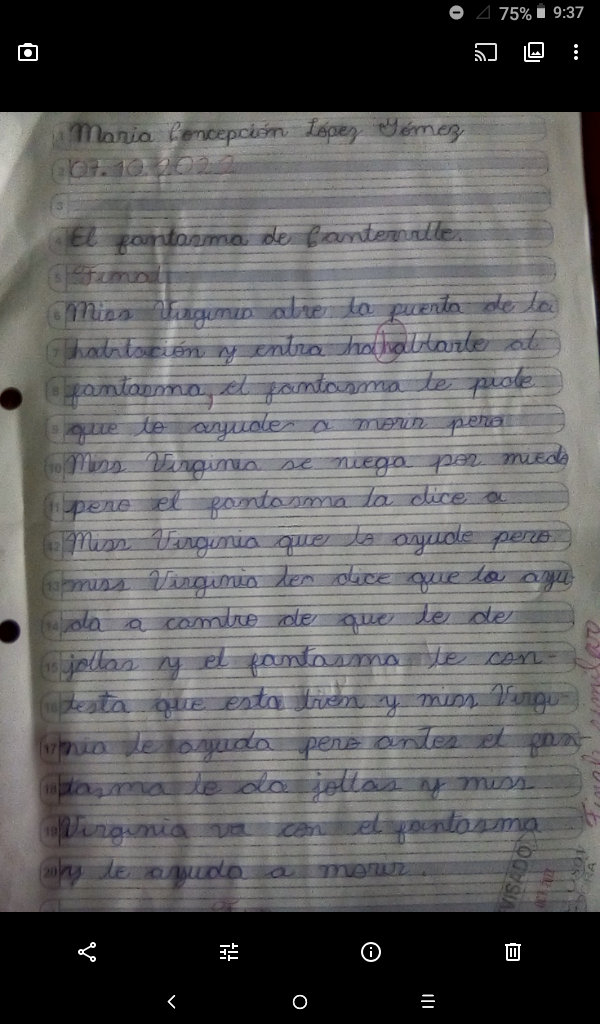 75% 9:37
Maria Concepción López Gómez
07.10.2022
El fantasma de Canterville.
Final
Miss Virginia abre la puerta de la
habitación y entra ha hablarle al
fantasma, el fantasma le pide
que lo ayude a morir pero
Miss Virginia se niega por miedo
pero el fantasma la dice a
Miss Virginia que lo ayude pero
miss Virginia le dice que lo ayu-
da a cambio de que le de
jollas y el fantasma le con-
testa que esta bien y miss Virgi-
nia le ayuda pero antes el fan-
tasma le da jollas y miss
Virginia va con el fantasma
y le ayuda a morir.
VISADO